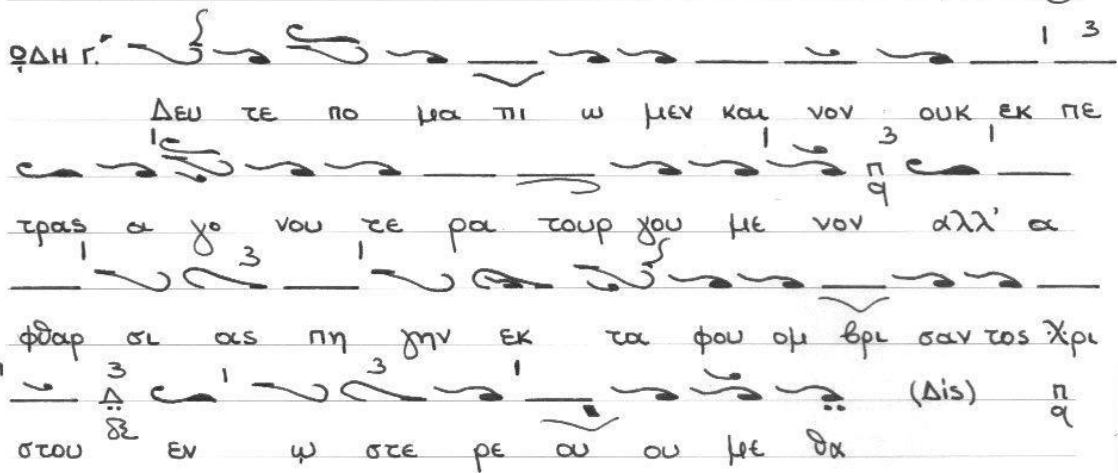 ῼΔΗ Γ΄. 1 3
Δευ τε πο μα πι ω μεν και νον ουκ εκ πε
1 1 3 π q 1
τρας α γο νου τε ρα τουρ γου με νον αλλ' α
1 3 1
φθαρ σι ας πη γην εκ τα φου ομ βρι σαν τος Χρι
1 3 Δ 1 3 1 (Δis) π q
στου εν ω στε ρε ου ου με θα